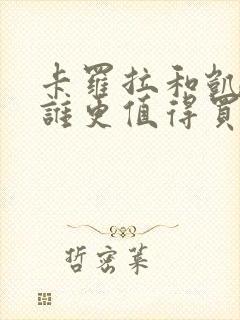 卡羅拉和凱
誰更值得買
哲密萊